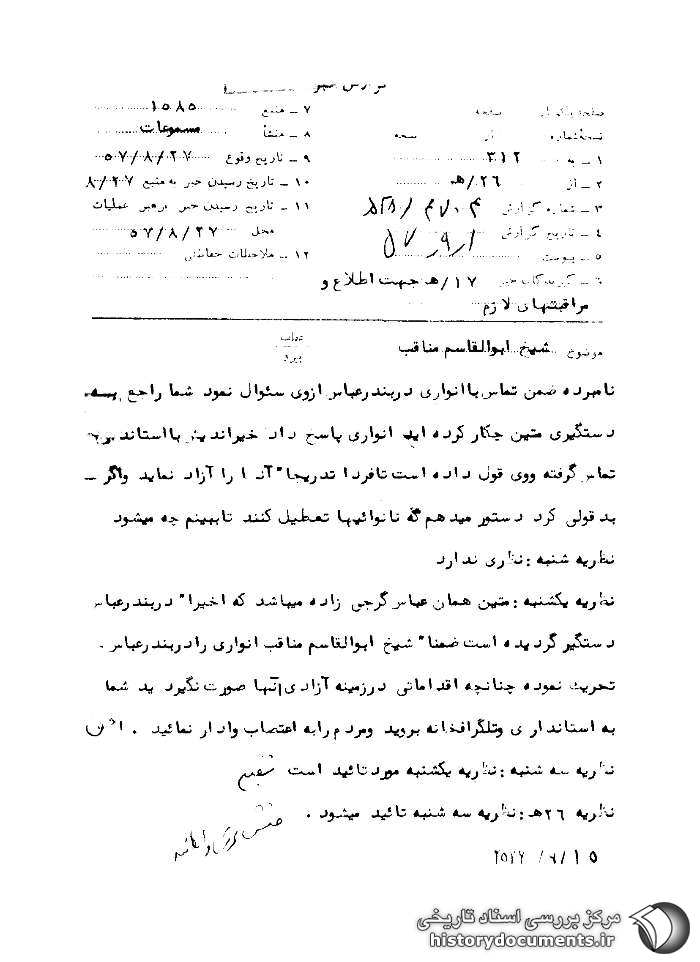 گزارش خبر
صفحه یکم از صفحه
نسخه شماره از نسخه
۱ ـ به ۳۱۲
۲ ـ از ۲۶/هـ
۳ ـ شماره گزارش
۴ ـ تاریخ گزارش
۵ ـ پیوست
۶ ـ گیرندگان خبر ۱۷/هـ جهت اطلاع و
مراقبتهای لازم
۷ ـ منبع ۱۵۸۵
۸ ـ منشأ مسموعات
۹ ـ تاریخ وقوع ۵۷/۸/۲۷
۱۰ ـ تاریخ رسیدن خبر به منبع ۸/۲۷
۱۱ ـ تاریخ رسیدن خبر برهبر عملیات
محل ۵۷/۸/۲۷
۱۲ ـ ملاحظات حفاظتی
موضوع شیخ ابوالقاسم مناقب
نامبرده ضمن تماس باانواری دربندرعباس ازوی سئوال نمود شما راجع بسه
دستگیری متین چکار کرده اید انواری پاسخ داد خیراندیش بااستاندار
تماس گرفته ووی قول داده است تافردا تدریجا" آنها را آزاد نماید واگر ـ
بد قولی کرد دستور میدهم که نانوائیها تعطیل کنند تاببینم چه میشود
نظریه شنبه : نظری ندارد
نظریه یکشنبه : متین همان عباس گرجی زاده میباشد که اخیرا" دربندرعباس
دستگیر گردیده است ضمنا" شیخ ابوالقاسم مناقب انواری رادربندرعباس .
تحریک نموده چنانچه اقداماتی درزمینه آزادی آنها صورت نگیرد ید شما
به استانداری وتلگرافخانه بروید ومردم رابه اعتصاب وادار نمائید .
نظریه سه شنبه : نظریه یکشنبه مورد تائید است
نظریه ۲۶هـ : نظریه سه شنبه تائید میشود .
مرکز بررسی اسناد تاریخی
historydocuments.ir